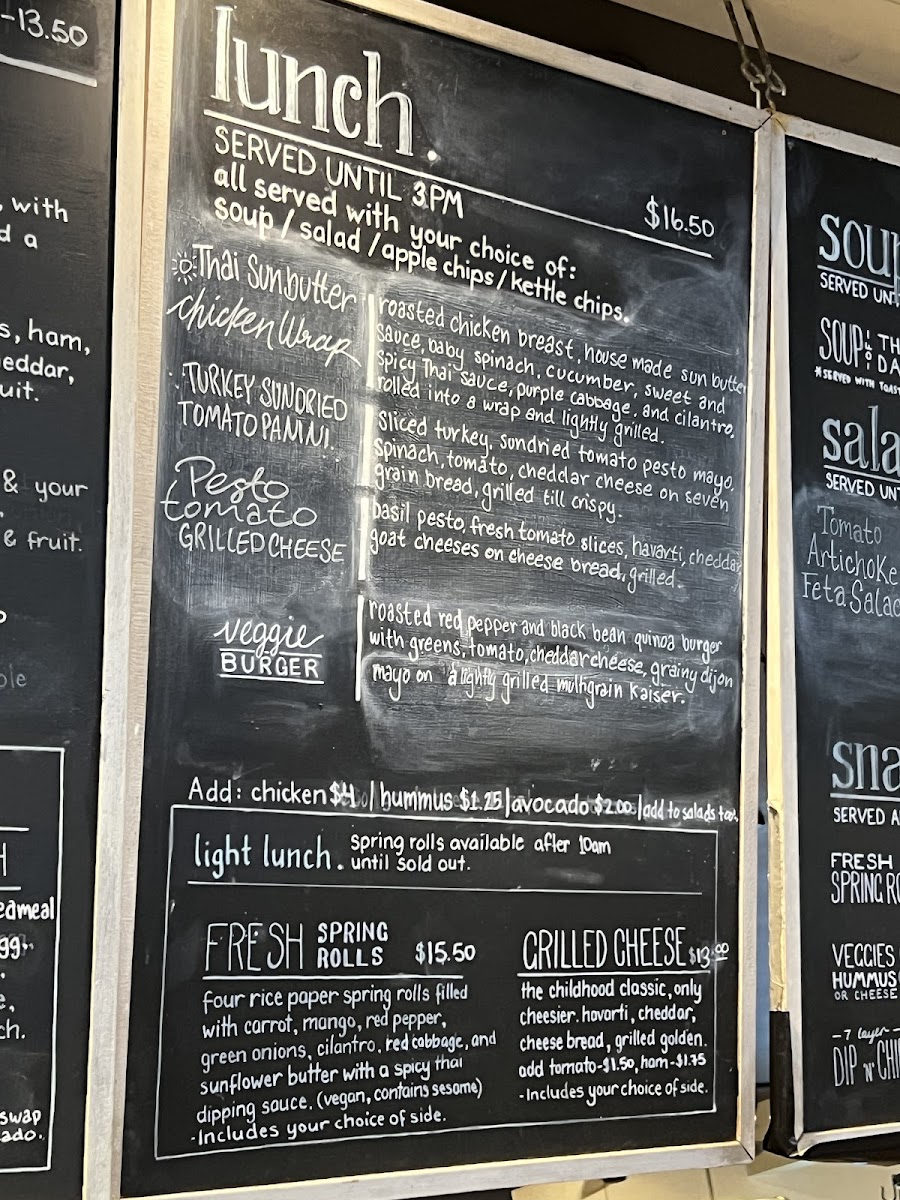 -13.50
, with
d a
s, ham,
eddar,
uit.
& your
& fruit.
ole
H
edmeal
gg,
e,
ch.
swap
ado.
lunch.
SERVED UNTIL 3PM
$16.50
all served with your choice of:
soup / salad / apple chips / kettle chips.
Thai Sunbutter
chicken Wrap
roasted chicken breast, house made sun butter
sauce, baby spinach, cucumber, sweet and
spicy Thai sauce, purple cabbage, and cilantro,
rolled into a wrap and lightly grilled.
TURKEY SUNDRIED
TOMATO PANINI.
Sliced turkey, sundried tomato pesto mayo,
spinach, tomato, cheddar cheese on seven
grain bread, grilled till crispy.
Pesto
tomato
GRILLED CHEESE
basil pesto, fresh tomato slices, havarti, cheddar
goat cheeses on cheese bread, grilled.
veggie
BURGER
roasted red pepper and black bean quinoa burger
with greens, tomato, cheddar cheese, grainy dijon
mayo on a lightly grilled multigrain Kaiser.
Add: chicken $4 | hummus $1.25 | avocado $2.00 | add to salads too.
light lunch. spring rolls available after 10am
until sold out.
FRESH SPRING
ROLLS $15.50
four rice paper spring rolls filled
with carrot, mango, red pepper,
green onions, cilantro, red cabbage, and
sunflower butter with a spicy thai
dipping sauce. (vegan, contains sesame)
-Includes your choice of side.
GRILLED CHEESE $13.00
the childhood classic, only
cheesier. havarti, cheddar,
cheese bread, grilled golden.
add tomato-$1.50, ham-$1.75
-Includes your choice of side.
soup
SERVED UNT
SOUP
TH
DA
*SERVED WITH TOAST
sala
SERVED UNT
Tomato
Artichoke
Feta Salad
sna
SERVED A
FRESH
SPRING RO
VEGGIES
HUMMUS
OR CHEESE
-7 layer-
DIP 'n' CHI